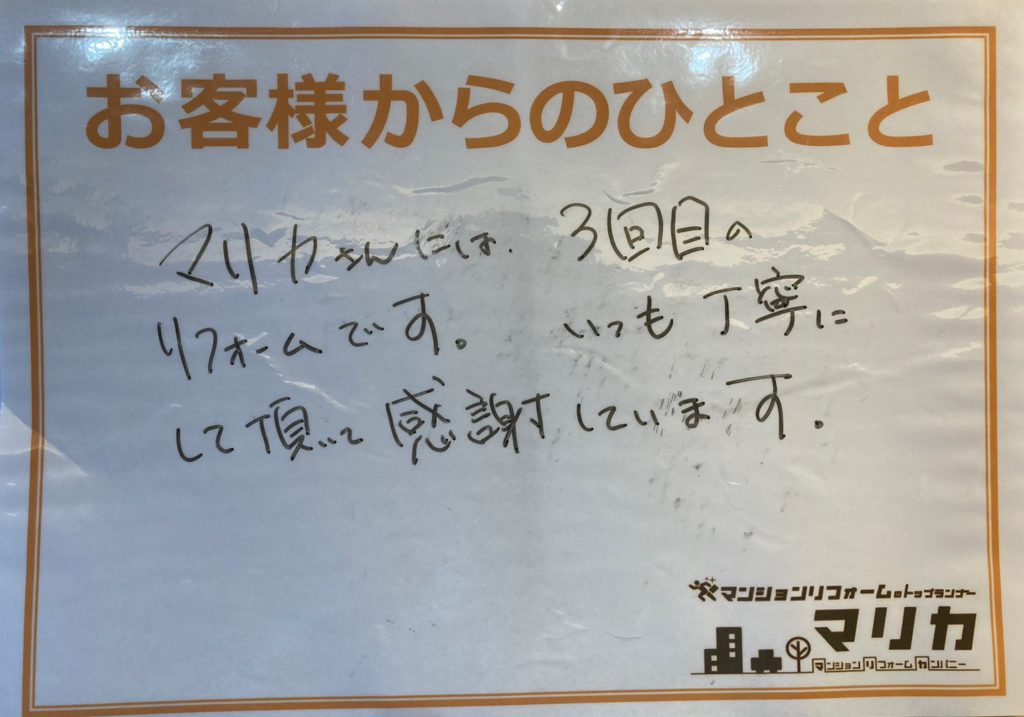 お客様からのひとこと
マリカさんには、3回目の
リフォームです。 いつも丁寧に
して頂いて感謝しています。
マンションリフォームのトップランナー
マリカ
マンションリフォームカンパニー